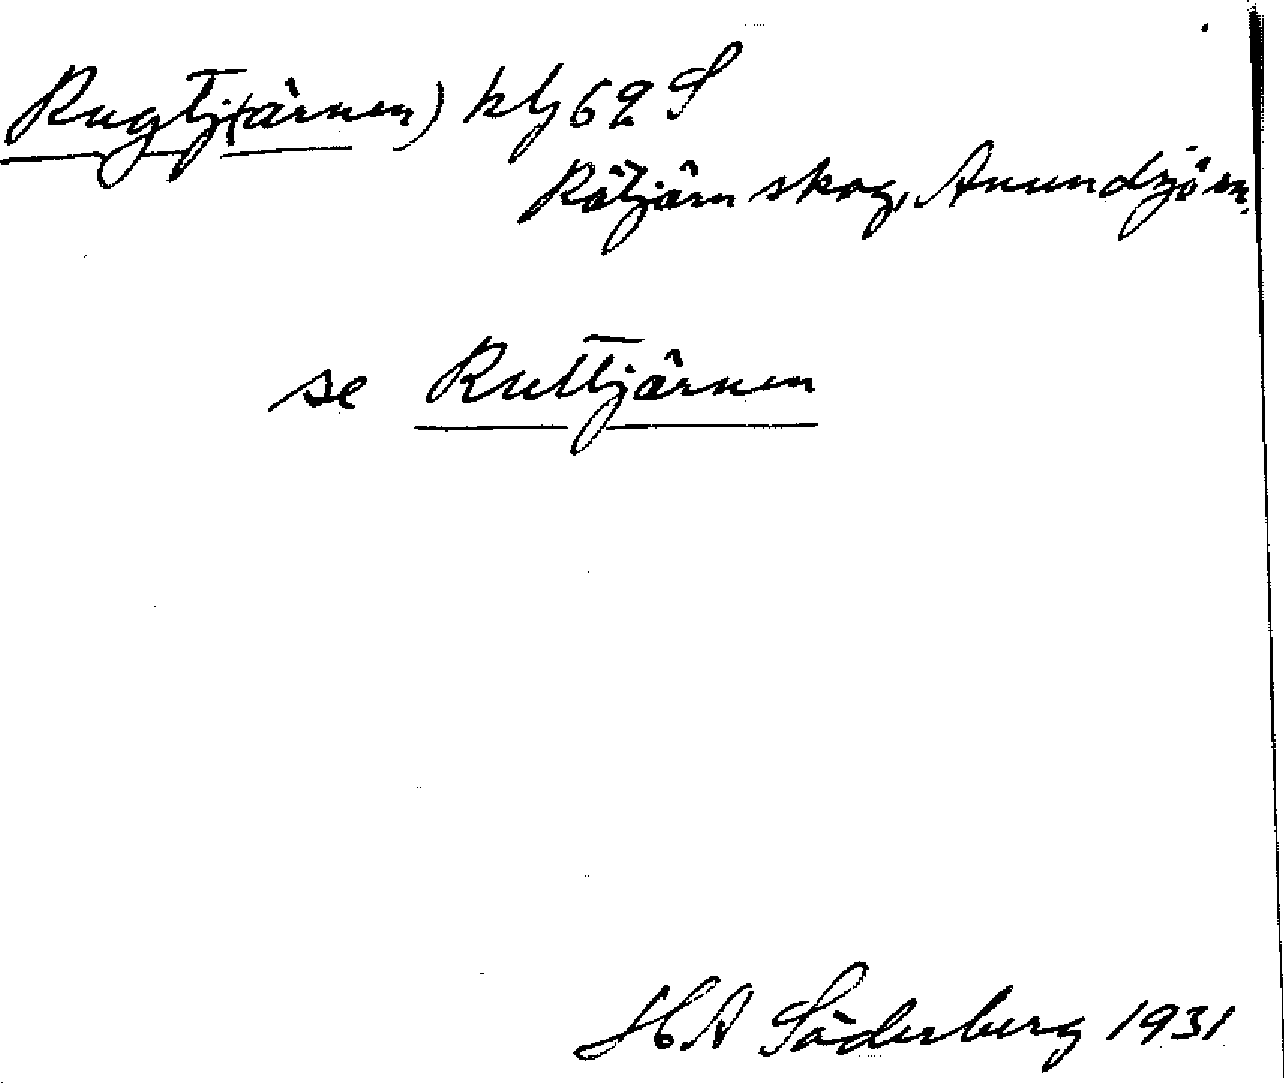 Rugtj(ärnen) klj 62 S
Råtjärn skog, Anundsjö sn.
se Ruttjärnen
H A Söderberg 1931